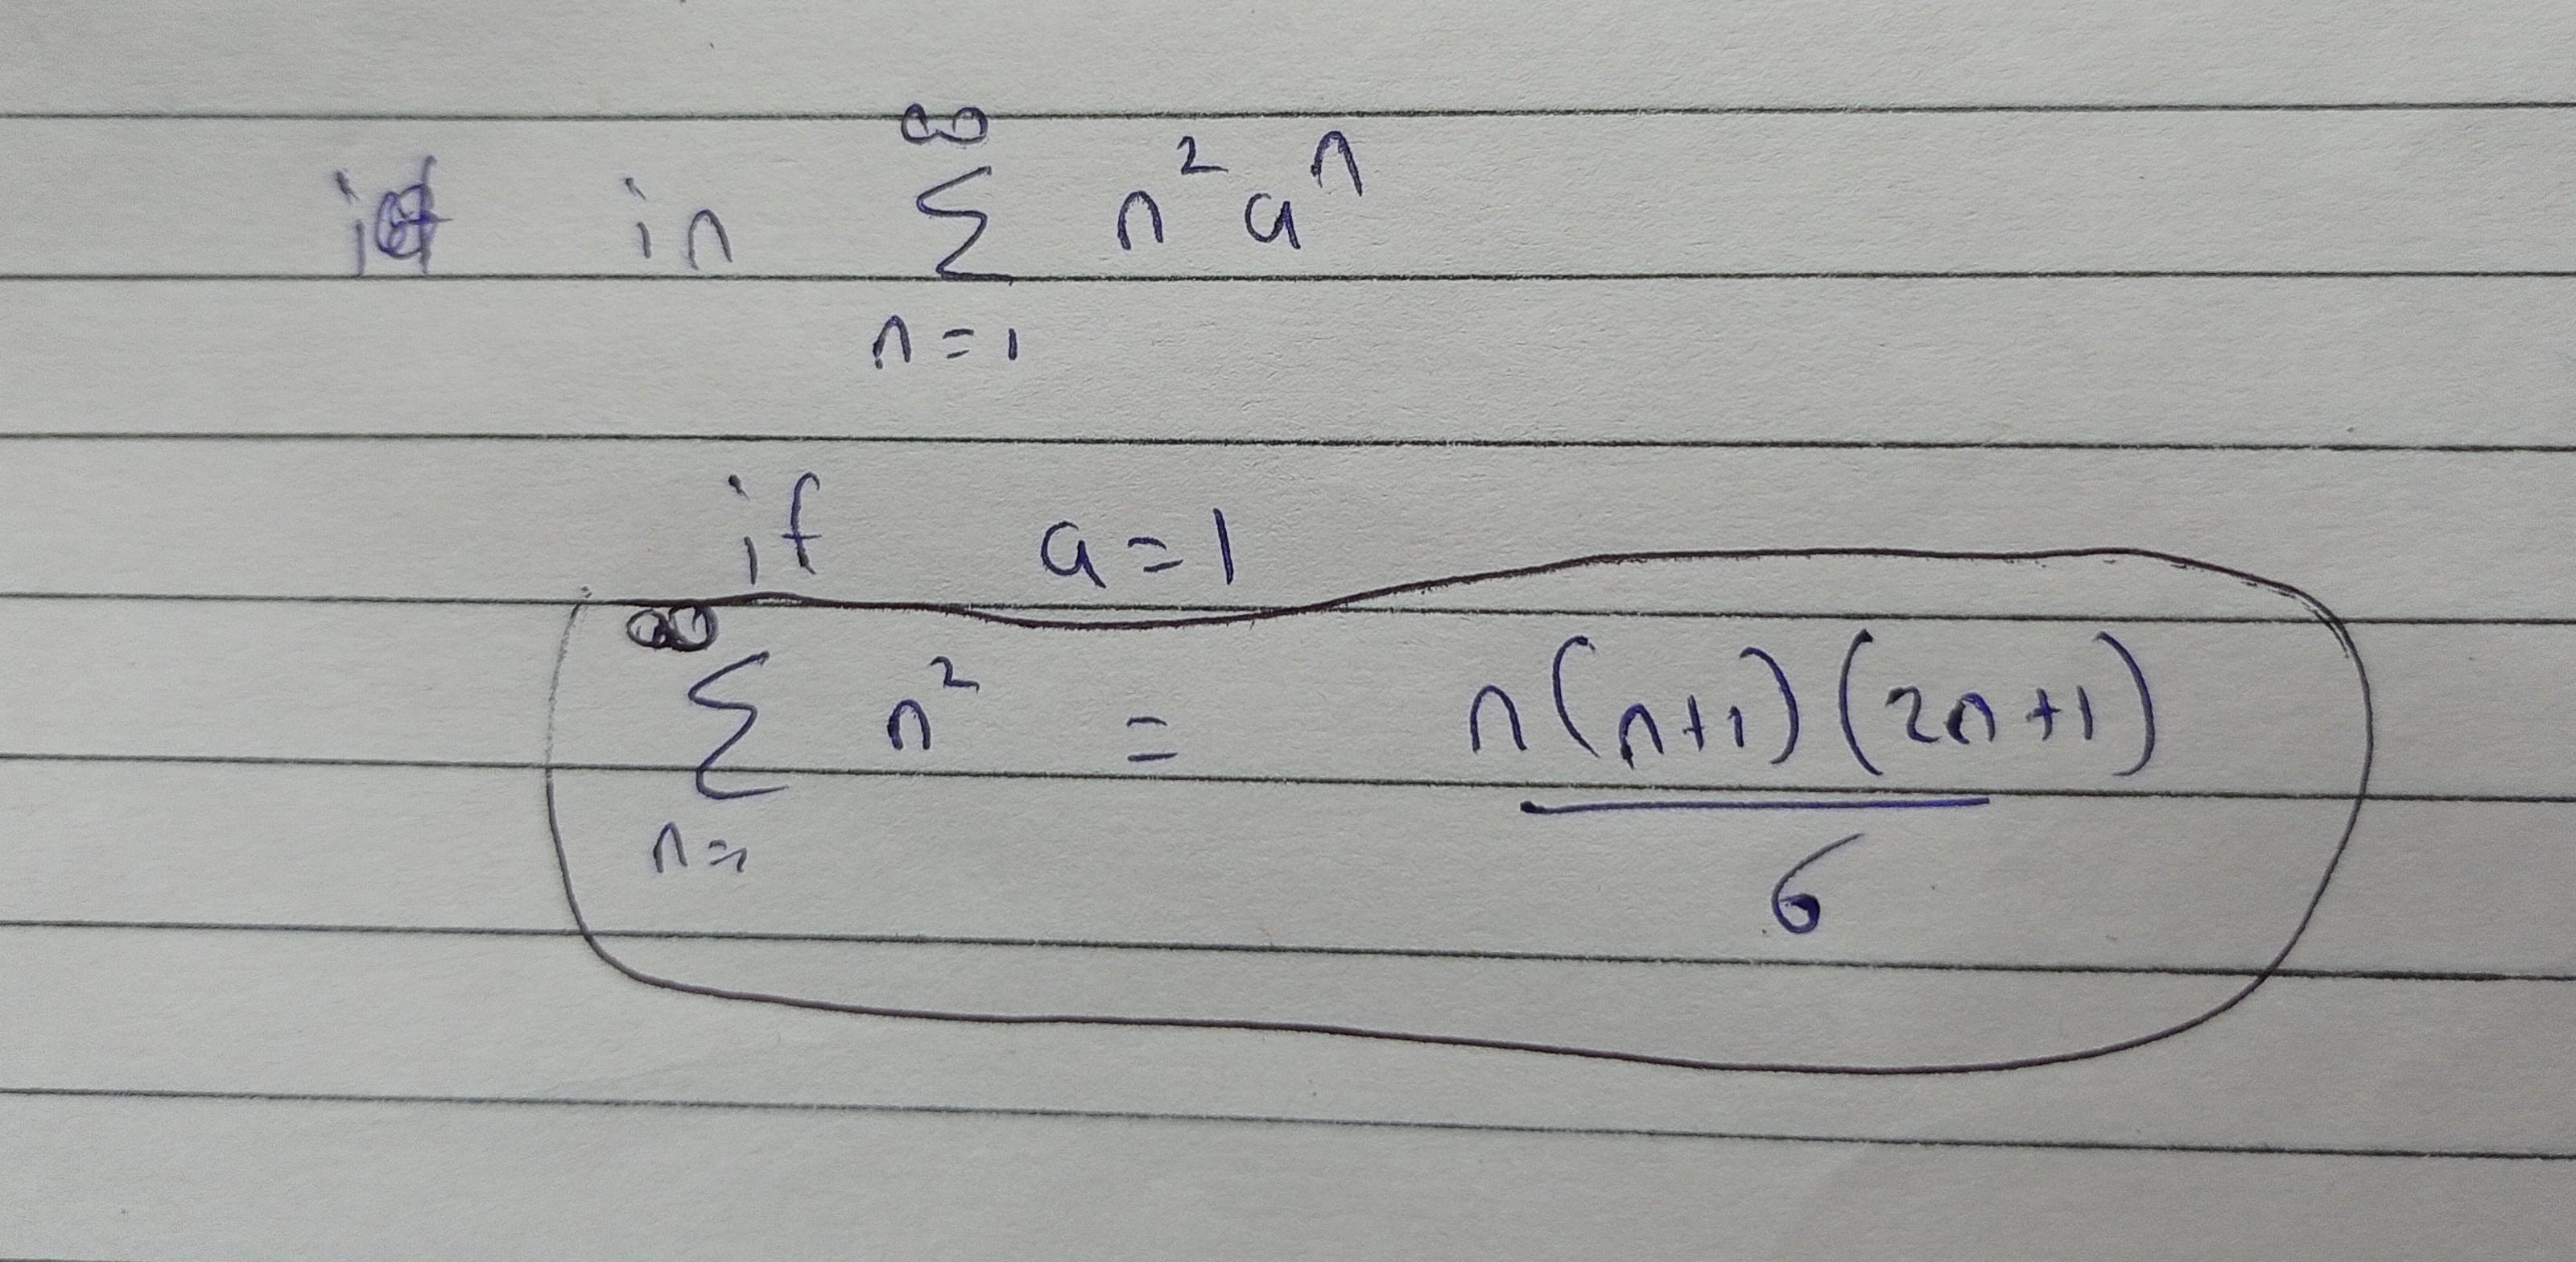 in ∞ Σ n=1 n² aⁿ
if a=1
∞ Σ n=1 n² = n(n+1)(2n+1) / 6